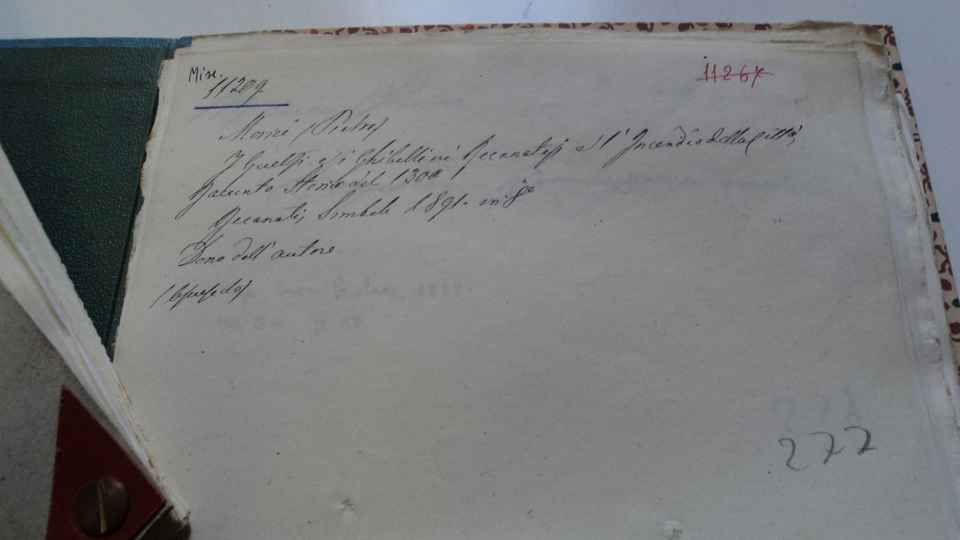 Misc.
11289
1126
Morici (Pietro)
I Guelfi e i Ghibellini Recanatesi e l'Incendio della Città,
Racconto Storico del 1300
Recanati, Simboli 1891. in 8°
Dono dell'autore
277